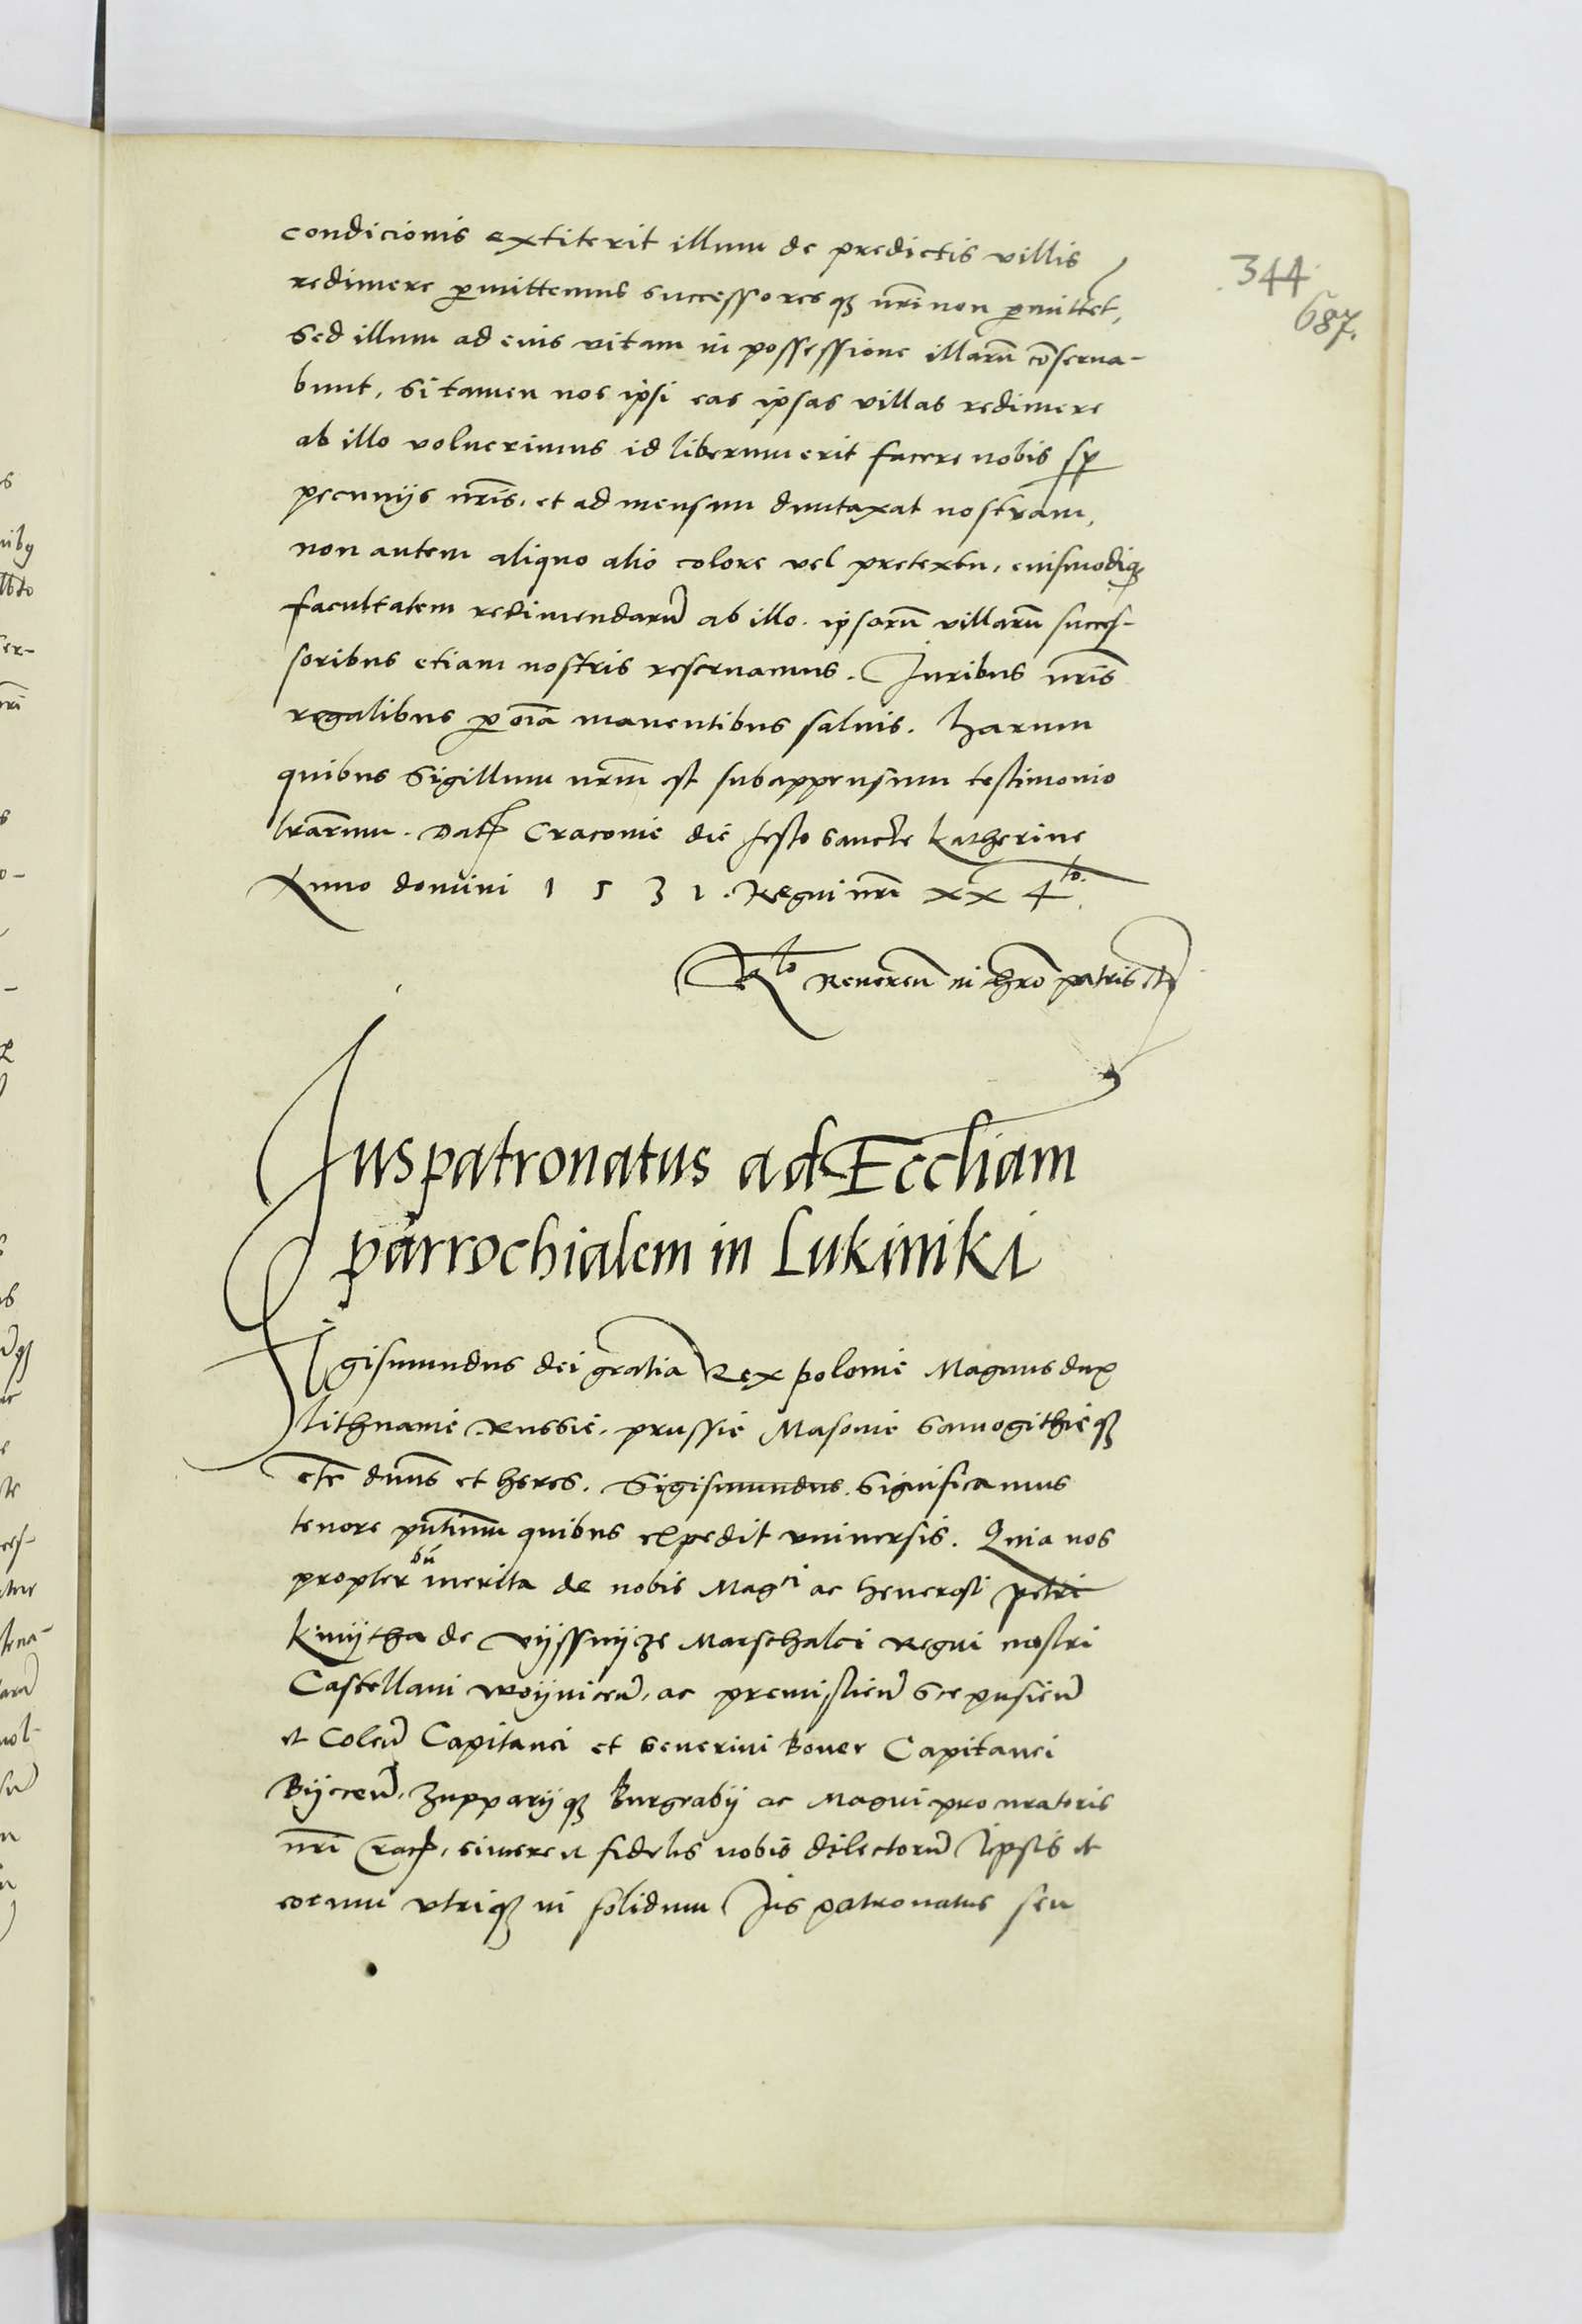 condicionis extiterit illum de predictis villis
redimere pmittemus successoresq3 nri non pmittet,
sed illum ad eius vitam in possessione illarū cōserua-
bunt, Si tamen nos ipsi eas ipsas villas redimere
ab illo voluerimus id liberum erit facere nobis sp
pecunijs nris. et ad mensam dumtaxat nostram,
non autem aliquo alio colore vel pretextu, eiusmodiq3
facultatem redimendarū ab illo ipsarū villarū succes-
soribus etiam nostris reseruamus. Juribus nris
regalibus p oīa manentibus saluis. harum
quibus Sigillum nrm est subappensum testimonio
lrarum. Dat Craconie die festo sancte Katherine
Anno domini 1 5 3 1. Regni nri xx 4to.
Rlo Reueren in chro patris etc
Juspatronatus ad Eccliam
parrochialem in Lukiniki
Sigismundus dei gratia Rex polonie Magnus dux
lithuanie Russie, prussie Masouie Samogithieq3
etc dnus et heres. Sigismundus. Significamus
tenore pntium quibus expedit vniuersis. Quia nos
propter bn merita de nobis Magci ac Generosi petri
Kmijtha de vijssnijcze Marschalci Regni nostri
Castellani woijnicen, ac premislien Scepusien
et Colen Capitanei et Seuerini Boner Capitanei
Bijecen, Zupparijq3 Burgrabij ac Magni procuratoris
nri Crac, sincere et fidelis nobis dilectorū Ipsis et
eorum vtriq3 in solidum Jus patronatus seu
344
687.